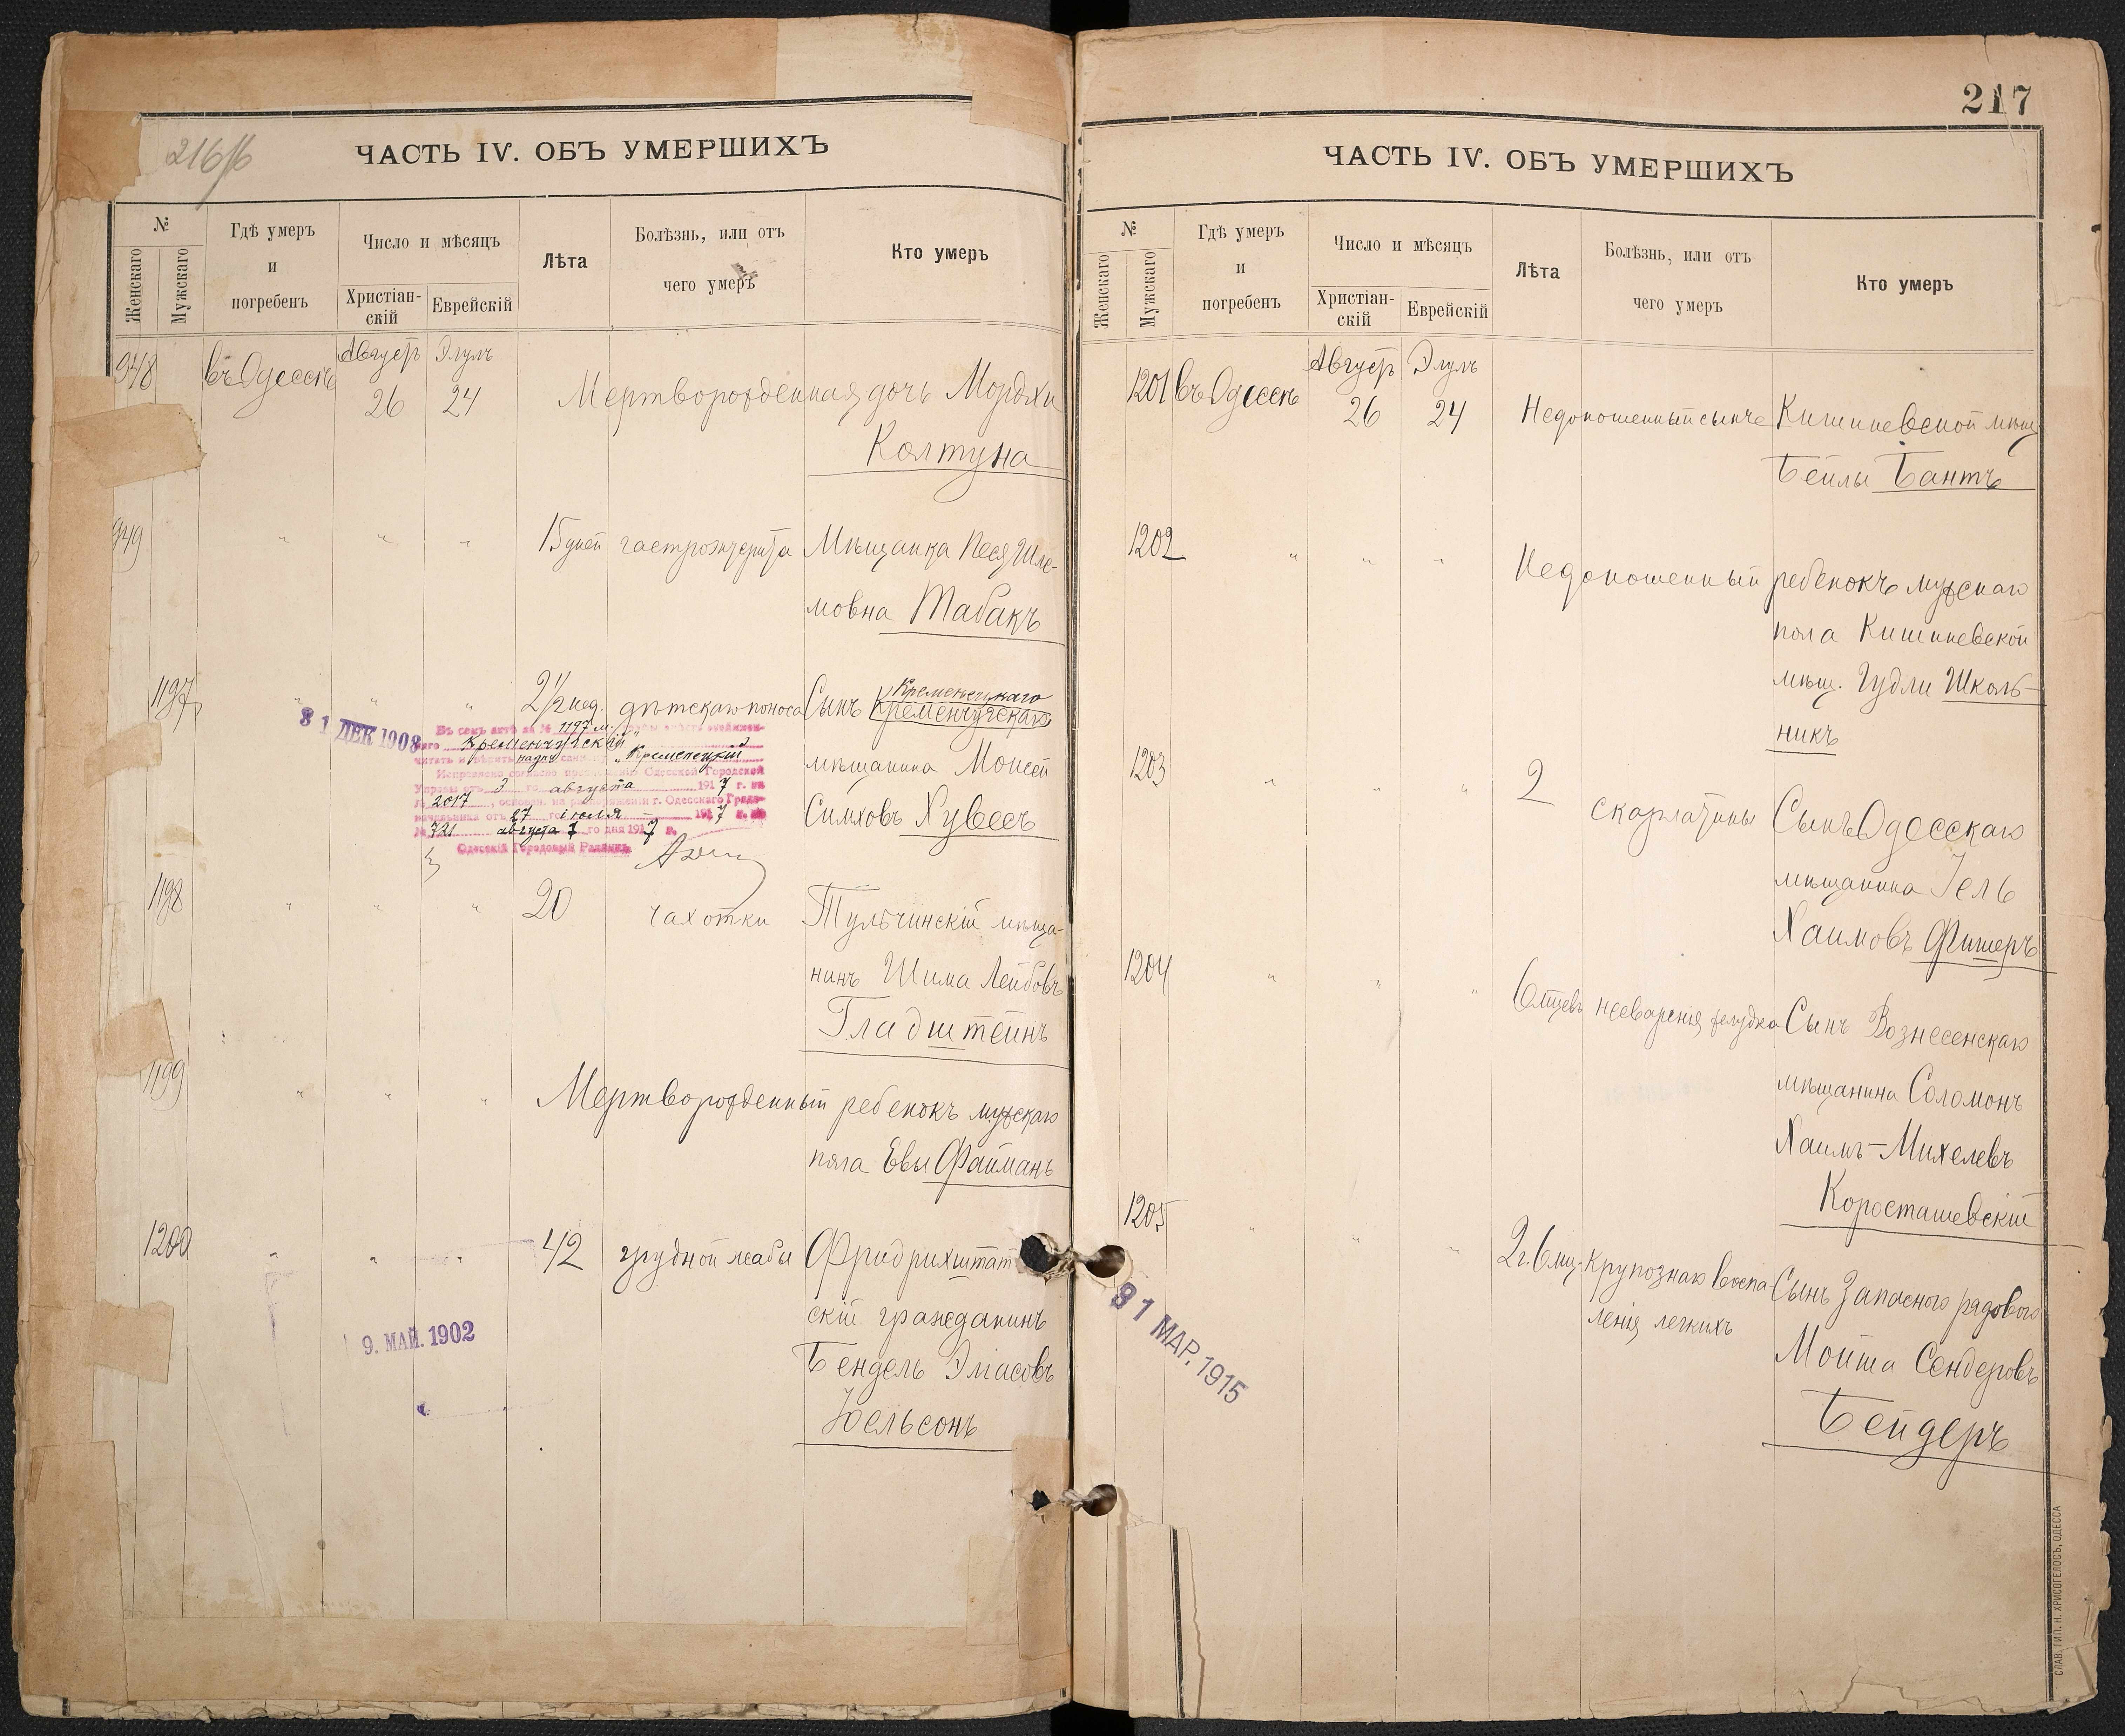 216/б
ЧАСТЬ IV. ОБЪ УМЕРШИХЪ
№
Женскаго
Мужскаго
Гдѣ умеръ
и
погребенъ
Число и мѣсяцъ
Христіан-
скій
Еврейскій
Лѣта
Болѣзнь, или отъ
чего умеръ
Кто умеръ
948 въ Одессѣ Август 26 Элулъ 24 Мертворожденная дочь Мордхи
Колтуна
949 " " " 15 дней гастроэнтерита Мѣщанка Песя Шле-
мовна Табакъ
1197 " " " 2 1/2 нед. дѣтскаго поноса Сынъ Кременчугскаго
Кременецкаго
мѣщанина Моисей
Симховъ Хувесъ
31 ДЕК 1908
Въ семъ актѣ за № 1197 м.
Кременчугскій
читать надпи „Кременецкій"
Исправлено согласно Одесской Городской
Управы отъ 3 го августа 1917 г. за
№ 2017, основан. на распоряженіи г. Одесскаго Градо-
начальника отъ 27 го іюля 1917 г. за
№ 721 августа 7 го дня 1917 г.
Одесскій Городовый Раввинъ
1198 " " " 20 чахотки Тульчинскій мѣща-
нинъ Шима Лейбовъ
Гладштейнъ
1199 " " " Мертворожденный ребенокъ мужскаго
пола Евы Файманъ
1200 " " " 42 грудной жабы Фридрихштат
скій гражданинъ
Бендель Эліасовъ
Юельсонъ
9. МАЙ. 1902
217
ЧАСТЬ IV. ОБЪ УМЕРШИХЪ
№
Женскаго
Мужскаго
Гдѣ умеръ
и
погребенъ
Число и мѣсяцъ
Христіан-
скій
Еврейскій
Лѣта
Болѣзнь, или отъ
чего умеръ
Кто умеръ
1201 въ Одессѣ Август 26 Элулъ 24 Недоношенный сынъ Кишиневской мѣщ
Бейлы Бантъ
1202 " " " Недоношенный ребенокъ мужскаго
пола Кишиневской
мѣщ. Гудли Школь-
никъ
1203 " " " 2 скарлатины Сынъ Одесскаго
мѣщанина Іель
Хаимовъ Фишеръ
1204 " " " 6 мцевъ несваренія желудка Сынъ Вознесенскаго
мѣщанина Соломонъ
Хаимъ-Михелевъ
Коросташевскій
1205 " " " 2 г. 6 мц. Крупознаго воспа
ленія легкихъ
Сынъ Запасного рядового
Мойша Сендеровъ
Бейдеръ
31 МАР. 1915
СЛАВ. ТИП. Н. ХРИСОГЕЛОСЪ, ОДЕССА